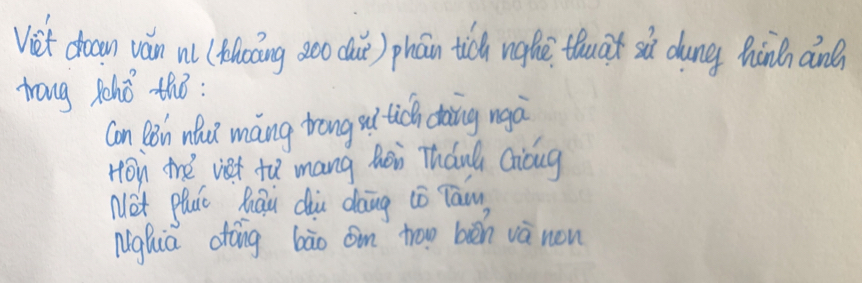 Viết đoạn văn nl (khoảng 200 chữ) phân tích nghệ thuật sử dụng hình ảnh
trong khổ thơ :
Con lớn như măng trong sự tích đằng ngà
Hồn trẻ việt tự mang hồn Thánh Gióng
Nết phúc hậu dịu dàng cô Tấm
Nghĩa đồng bào ôm trọn biển và non